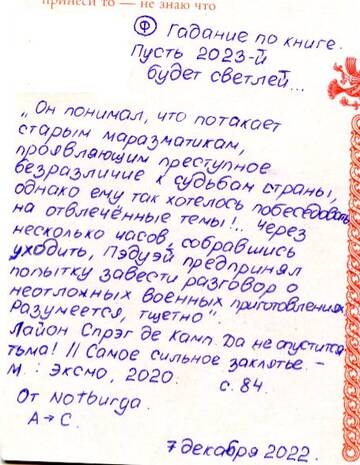 принеси то — не знаю что
Ⓕ Гадание по книге.
Пусть 2023-й
будет светлей...
„Он понимал, что потакает
старым маразматикам,
проявляющим преступное
безразличие к судьбам страны,
однако ему так хотелось побеседовать
на отвлечённые темы!.. Через
несколько часов, собравшись
уходить, Пэдуэй предпринял
попытку завести разговор о
неотложных военных приготовлениях.
Разумеется, тщетно".
Лайон Спрэг де Камп. Да не опустится
тьма! // Самое сильное заклятье. –
М.: Эксмо, 2020. с. 84.
От Notburga.
А → С.
7 декабря 2022.